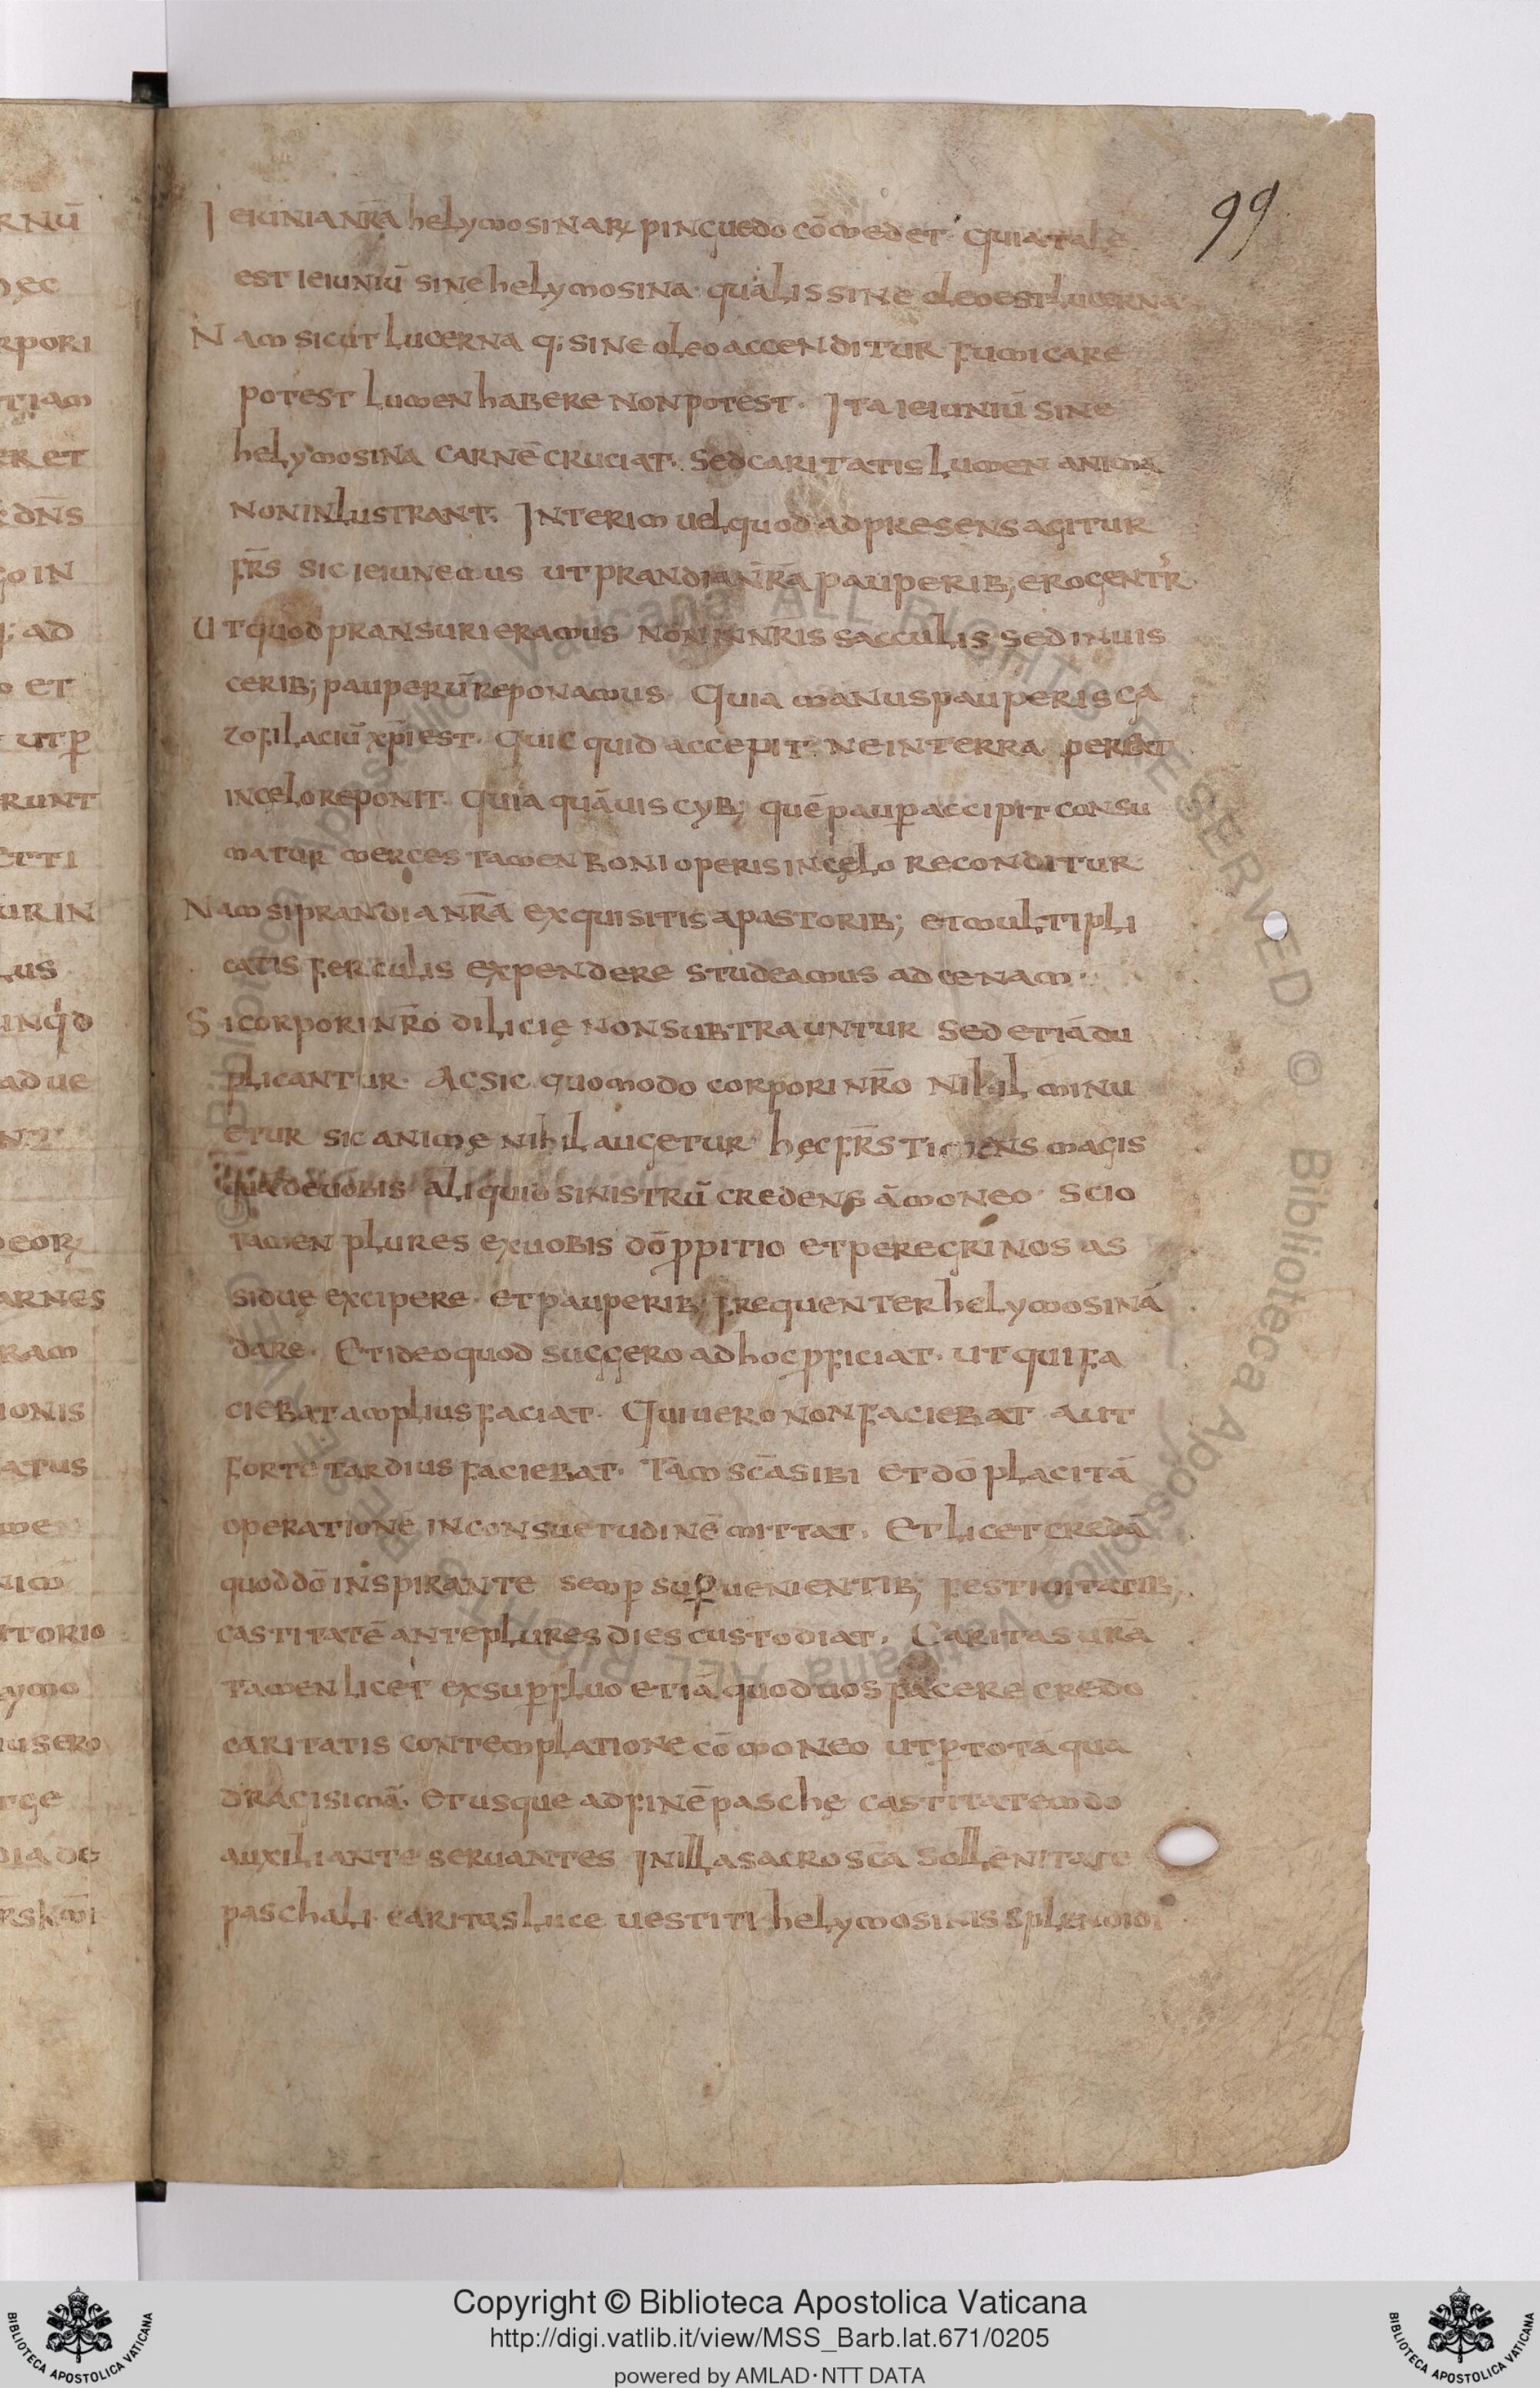 99
Ieiunia nr̄a helymosinarꝝ pinguedo cōmedet. Quia tale
est ieiuniū sine helymosina. qualis sine oleo est lucerna
Nam sicut lucerna q; sine oleo accenditur fumicare
potest lumen habere non potest. Ita ieiuniū sine
helymosina carnē cruciat. sed caritatis lumen anima
non inlustrant. Interim uel quod ad presens agitur
fr̄s sic ieiunemus ut prandia nr̄a pauperib; erogentr̓
Ut quod pransuri eramus non in nr̄is sacculis sed in uis
cerib; pauperū reponamus. Quia manus pauperis ga
zofilaciū xp̄i est. Quic quid accepit. ne in terra pereat
in cęlo reponit. Quia quāuis cyb; quē paup̲ accipit consu
matur merces tamen boni operis in cęlo reconditur
Nam si prandia nr̄a exquisitis apastorib; et multipli
catis ferculis expendere studeamus ad cenam.
Si corpori nr̄o dilicię non subtrauntur sed etiā du
plicantur. Ac sic quomodo corpori nr̄o nihil minu
etur sic animę nihil augetur. hęc fr̄s timens magis
quā de uobis aliquid sinistrū credens āmoneo. Scio
tamen plures ex uobis dō ꝓpitio et peregrinos as
siduę excipere. et pauperib; frequenter helymosinā
dare. Et ideo quod suggero ad hoc ꝓficiat. ut qui fa
ciebat amplius faciat. Qui uero non faciebat aut
forte tardius faciebat. Tam sc̄a sibi et dō placitā
operationē in consuetudinē mittat. Et licet credā
quod dō inspirante semp̲ sup̲uenientib; festiuitatib;
castitatē ante plures dies custodiat. Caritas ur̄a
tamen licet ex sup̲fluo etiā quod uos facere credo
caritatis contemplatione cōmoneo ut p̲ totā qua
dragisimā. et usque ad finē paschę castitatem dō
auxiliante seruantes In illa sacro sc̄a sollēnitate
paschali. caritas luce uestiti helymosinis splendidi
Copyright © Biblioteca Apostolica Vaticana
http://digi.vatlib.it/view/MSS_Barb.lat.671/0205
powered by AMLAD·NTT DATA
BIBLIOTECA APOSTOLICA VATICANA
BIBLIOTECA APOSTOLICA VATICANA